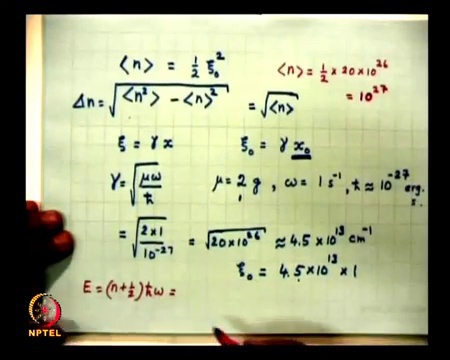 <n> = 1/2 ξ₀²
<n> = 1/2 × 20 × 10²⁶
= 10²⁷
Δn = √(<n²> − <n>²) = √<n>
ξ = γx ξ₀ = γ x₀
γ = √(μω/ħ) μ = 2 g, ω = 1 s⁻¹, ħ ≈ 10⁻²⁷ erg.s.
= √(2×1/10⁻²⁷) = √(20×10²⁶) ≈ 4.5 × 10¹³ cm⁻¹
ξ₀ = 4.5 × 10¹³ × 1
E = (n + 1/2) ħω =
NPTEL